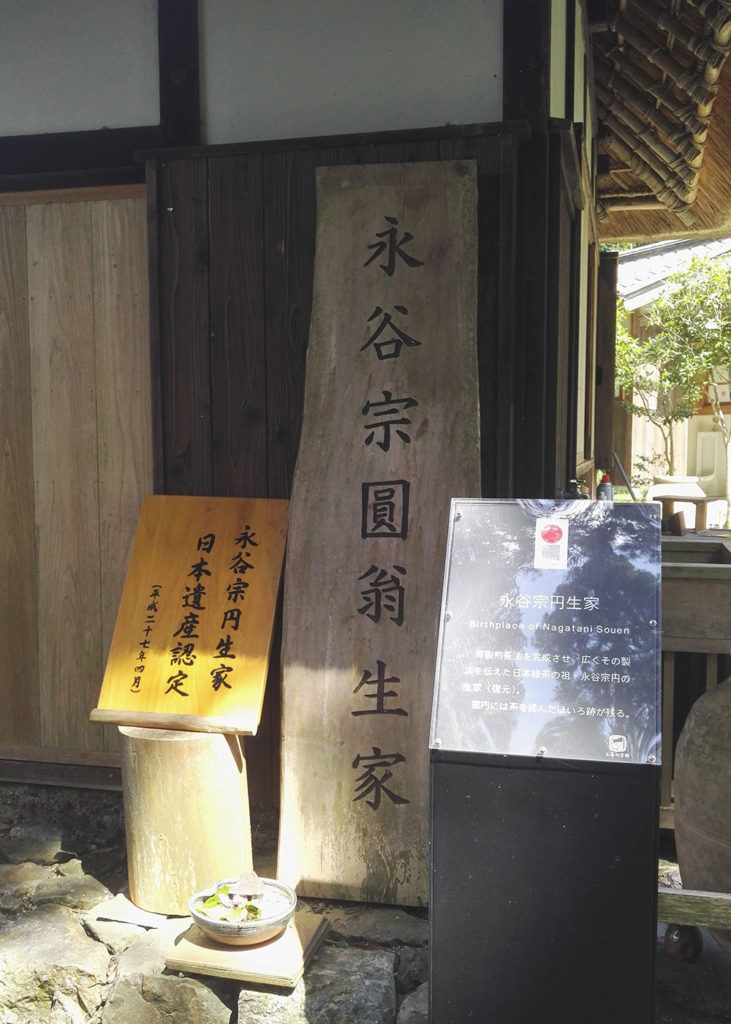 永谷宗圓翁生家
永谷宗円生家
日本遺産認定
(平成二十七年四月)
永谷宗円生家
Birthplace of Nagatani Souen
製煎茶法を完成させ、広くその製
法を伝えた日本緑茶の祖・永谷宗円の
生家(復元)。
室内には茶を揉んだほいろ跡が残る。